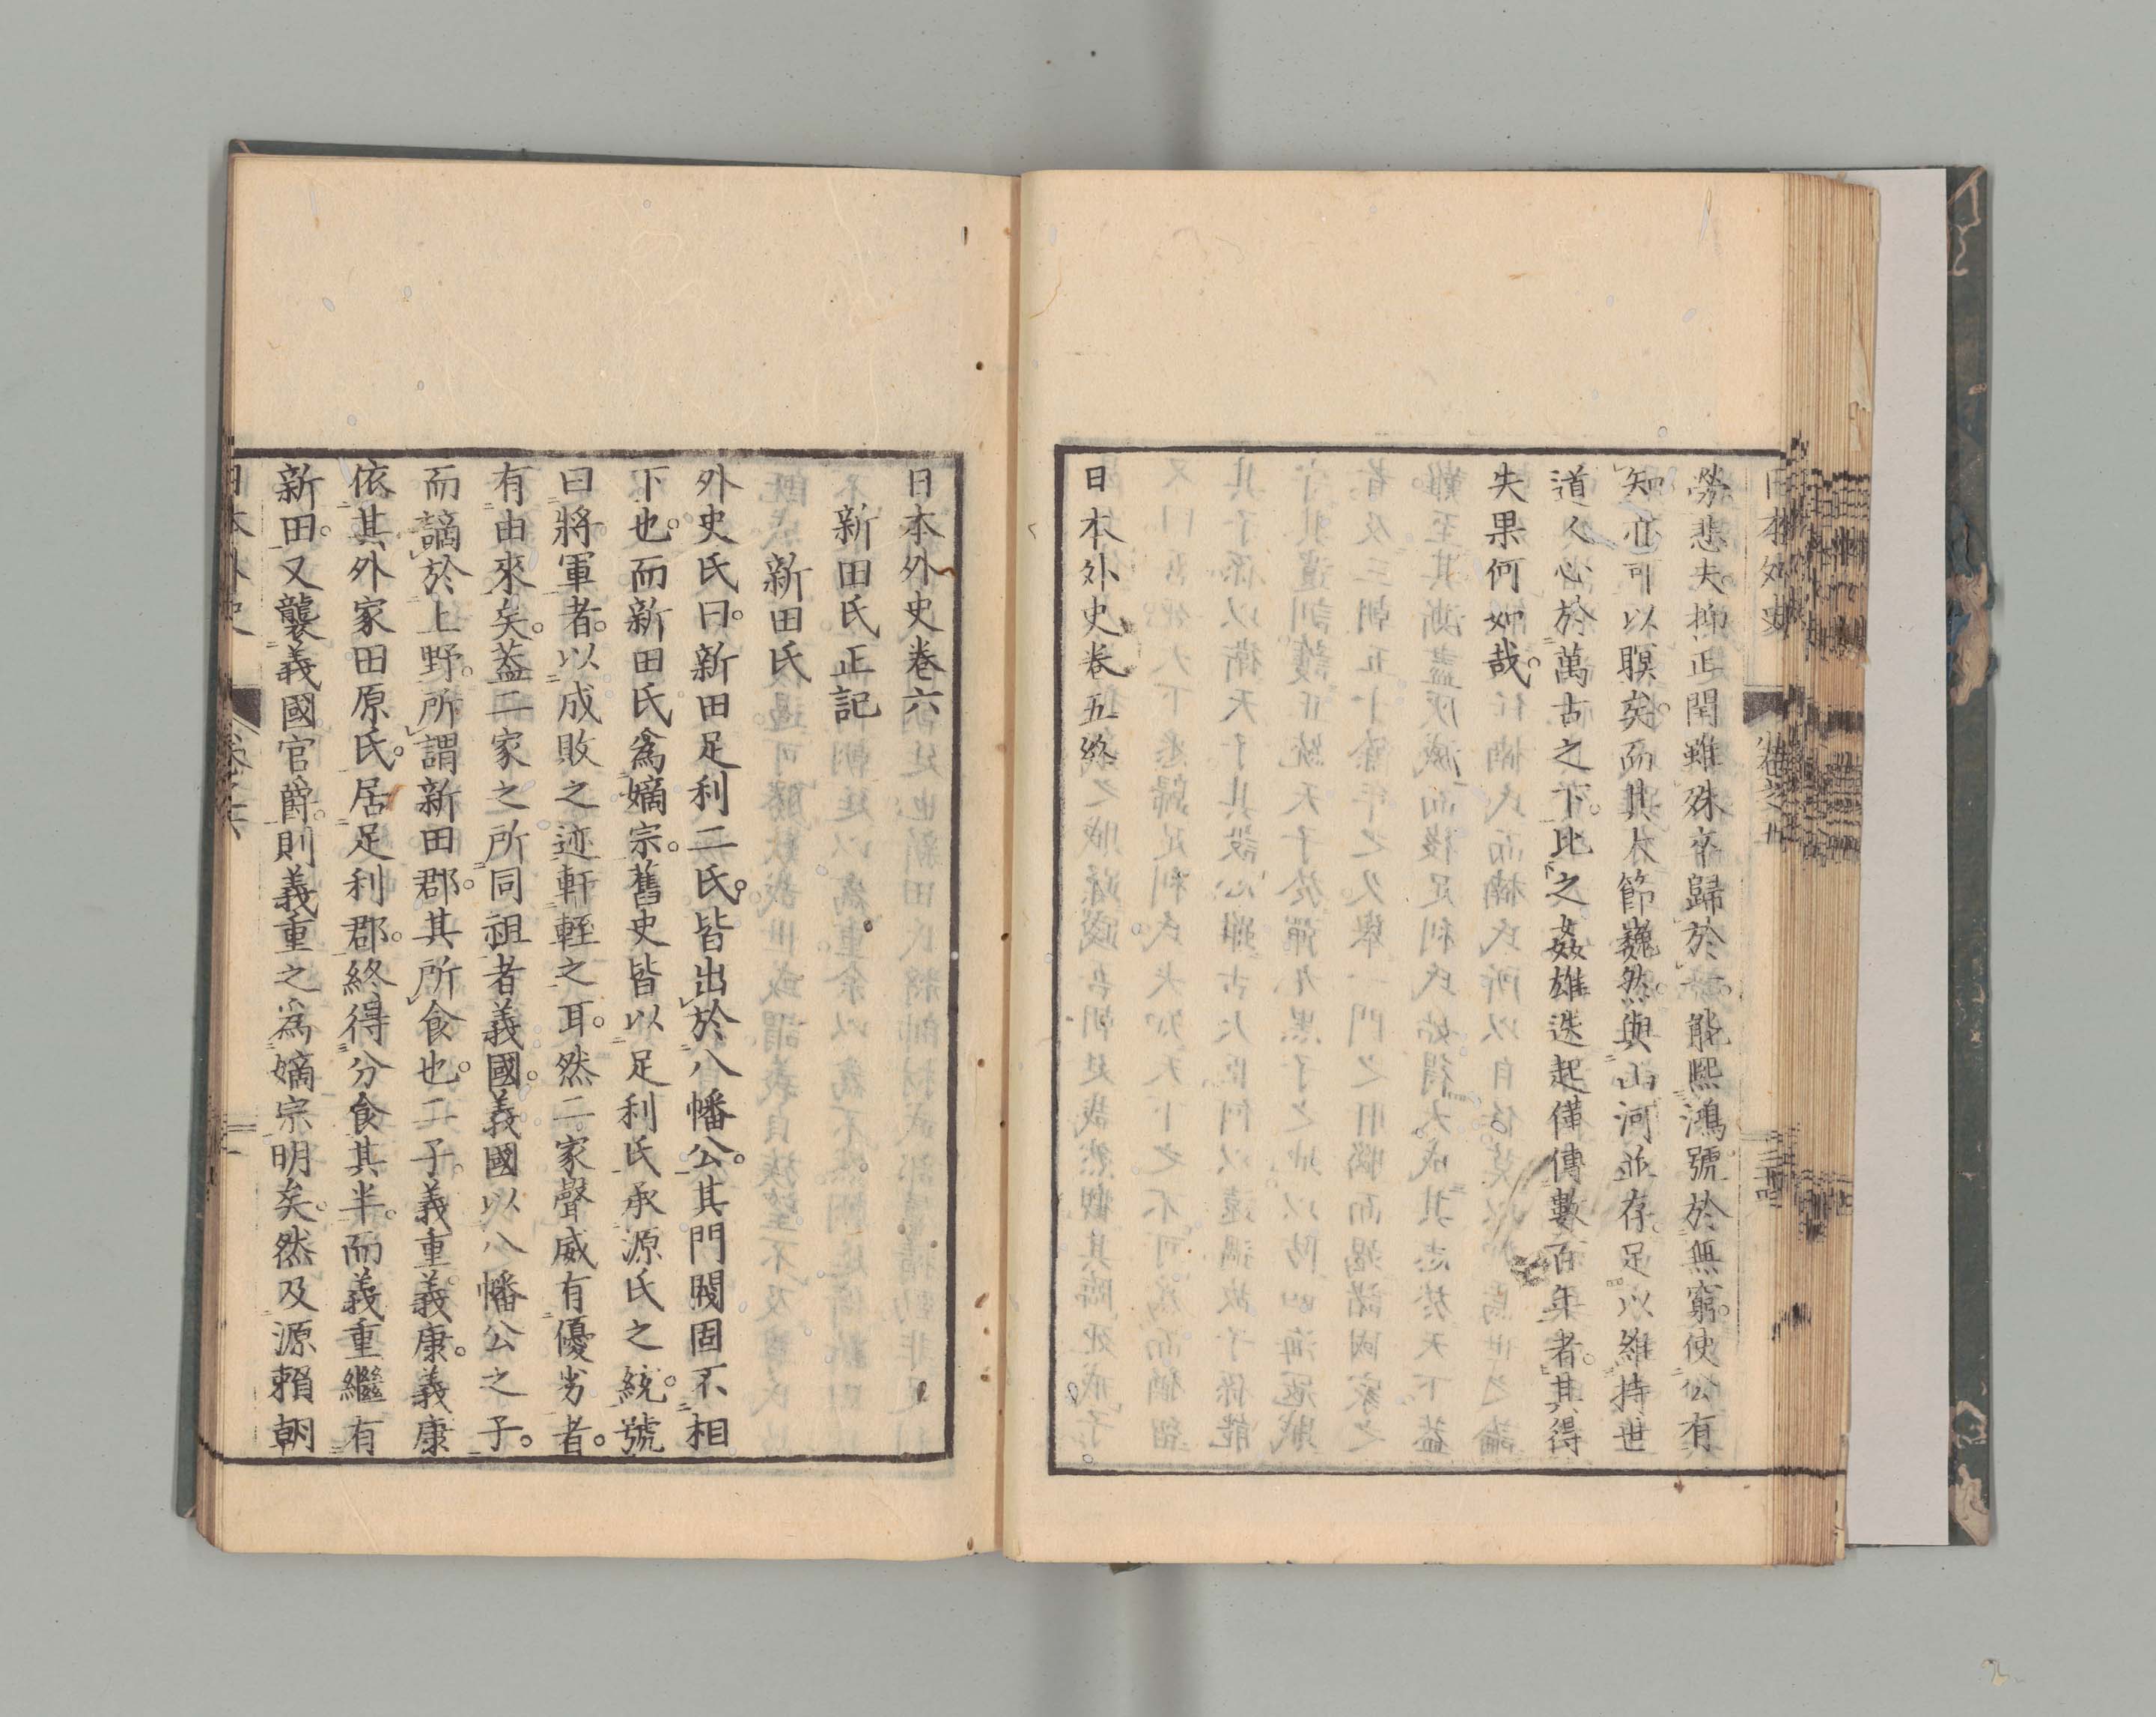 勞悲夫。抑正閏雖殊。卒歸於一。能熈鴻號於無窮。使公有
知。亦可以瞑矣。而其大節巍然。與山河並存。足以維持世
道人心於萬古之下。比之姦雄迭起。僅傳數百年者。其得
失果何如哉。
日本外史卷五終
日本外史卷六
新田氏正記
新田氏
外史氏曰。新田足利二氏。皆出於八幡公。其門閥固不相
下也。而新田氏爲嫡宗。舊史皆以足利氏承源氏之統。號
曰將軍者。以成敗之迹軒輊之耳。然二家聲威有優劣者。
有由來矣。蓋二家之所同祖者義國。義國以八幡公之子。
而謫於上野。所謂新田郡。其所食也。二子。義重義康。義康
依其外家田原氏。居足利郡。終得分食其半。而義重繼有
新田。又襲義國官爵。則義重之爲嫡宗明矣。然及源賴朝
日本外史